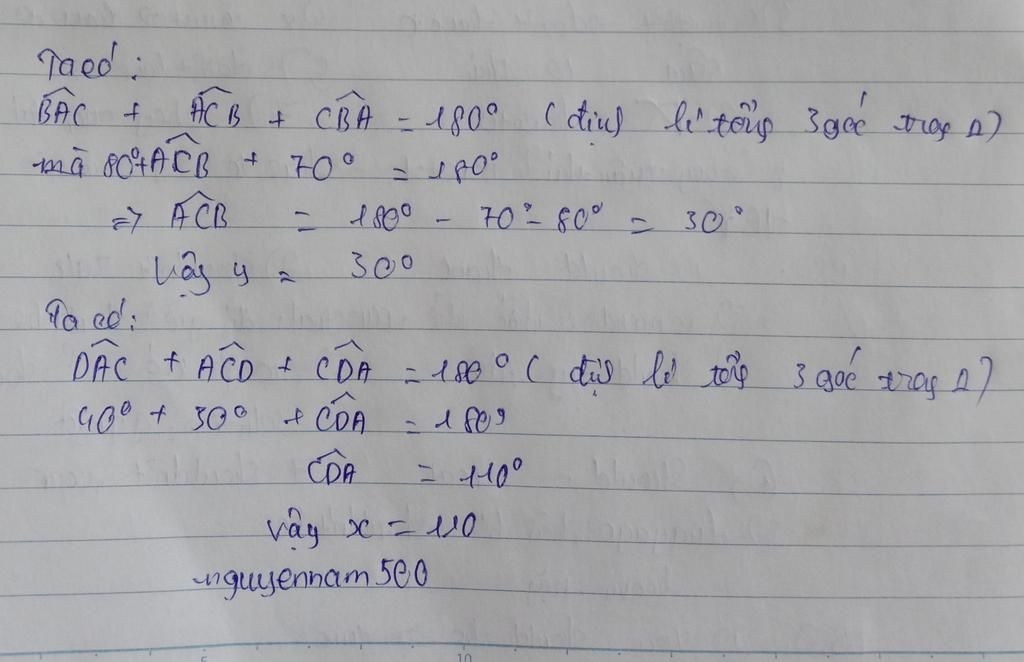 Ta có :
BAC + ACB + CBA = 180° ( định lí tổng 3 góc trong Δ )
mà 80°+ACB + 70° = 180°
=> ACB = 180° - 70° - 80° = 30°
Vậy y = 30°
Ta có:
DAC + ACD + CDA = 180° ( định lí tổng 3 góc trong Δ )
40° + 30° + CDA = 180°
CDA = 110°
vậy x = 110
nguyennam500
5 10